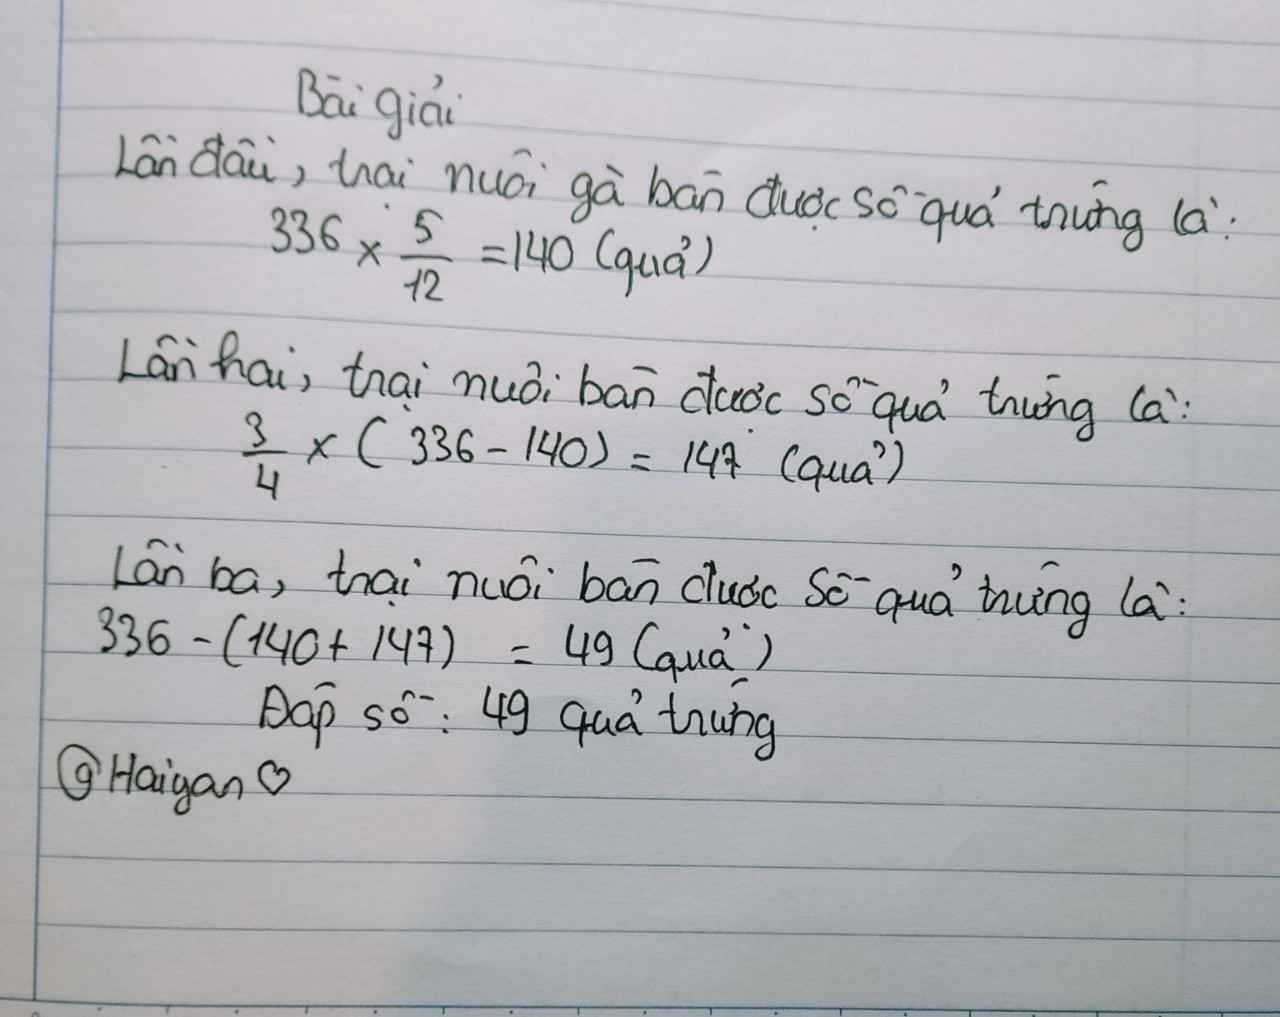 Bài giải
Lần đầu, trại nuôi gà bán được số quả trứng là:
336 × 5/12 = 140 (quả)
Lần hai, trại nuôi bán được số quả trứng là:
3/4 × (336 - 140) = 147 (quả)
Lần ba, trại nuôi bán được số quả trứng là:
336 - (140 + 147) = 49 (quả)
Đáp số: 49 quả trứng
@Haiyan♡